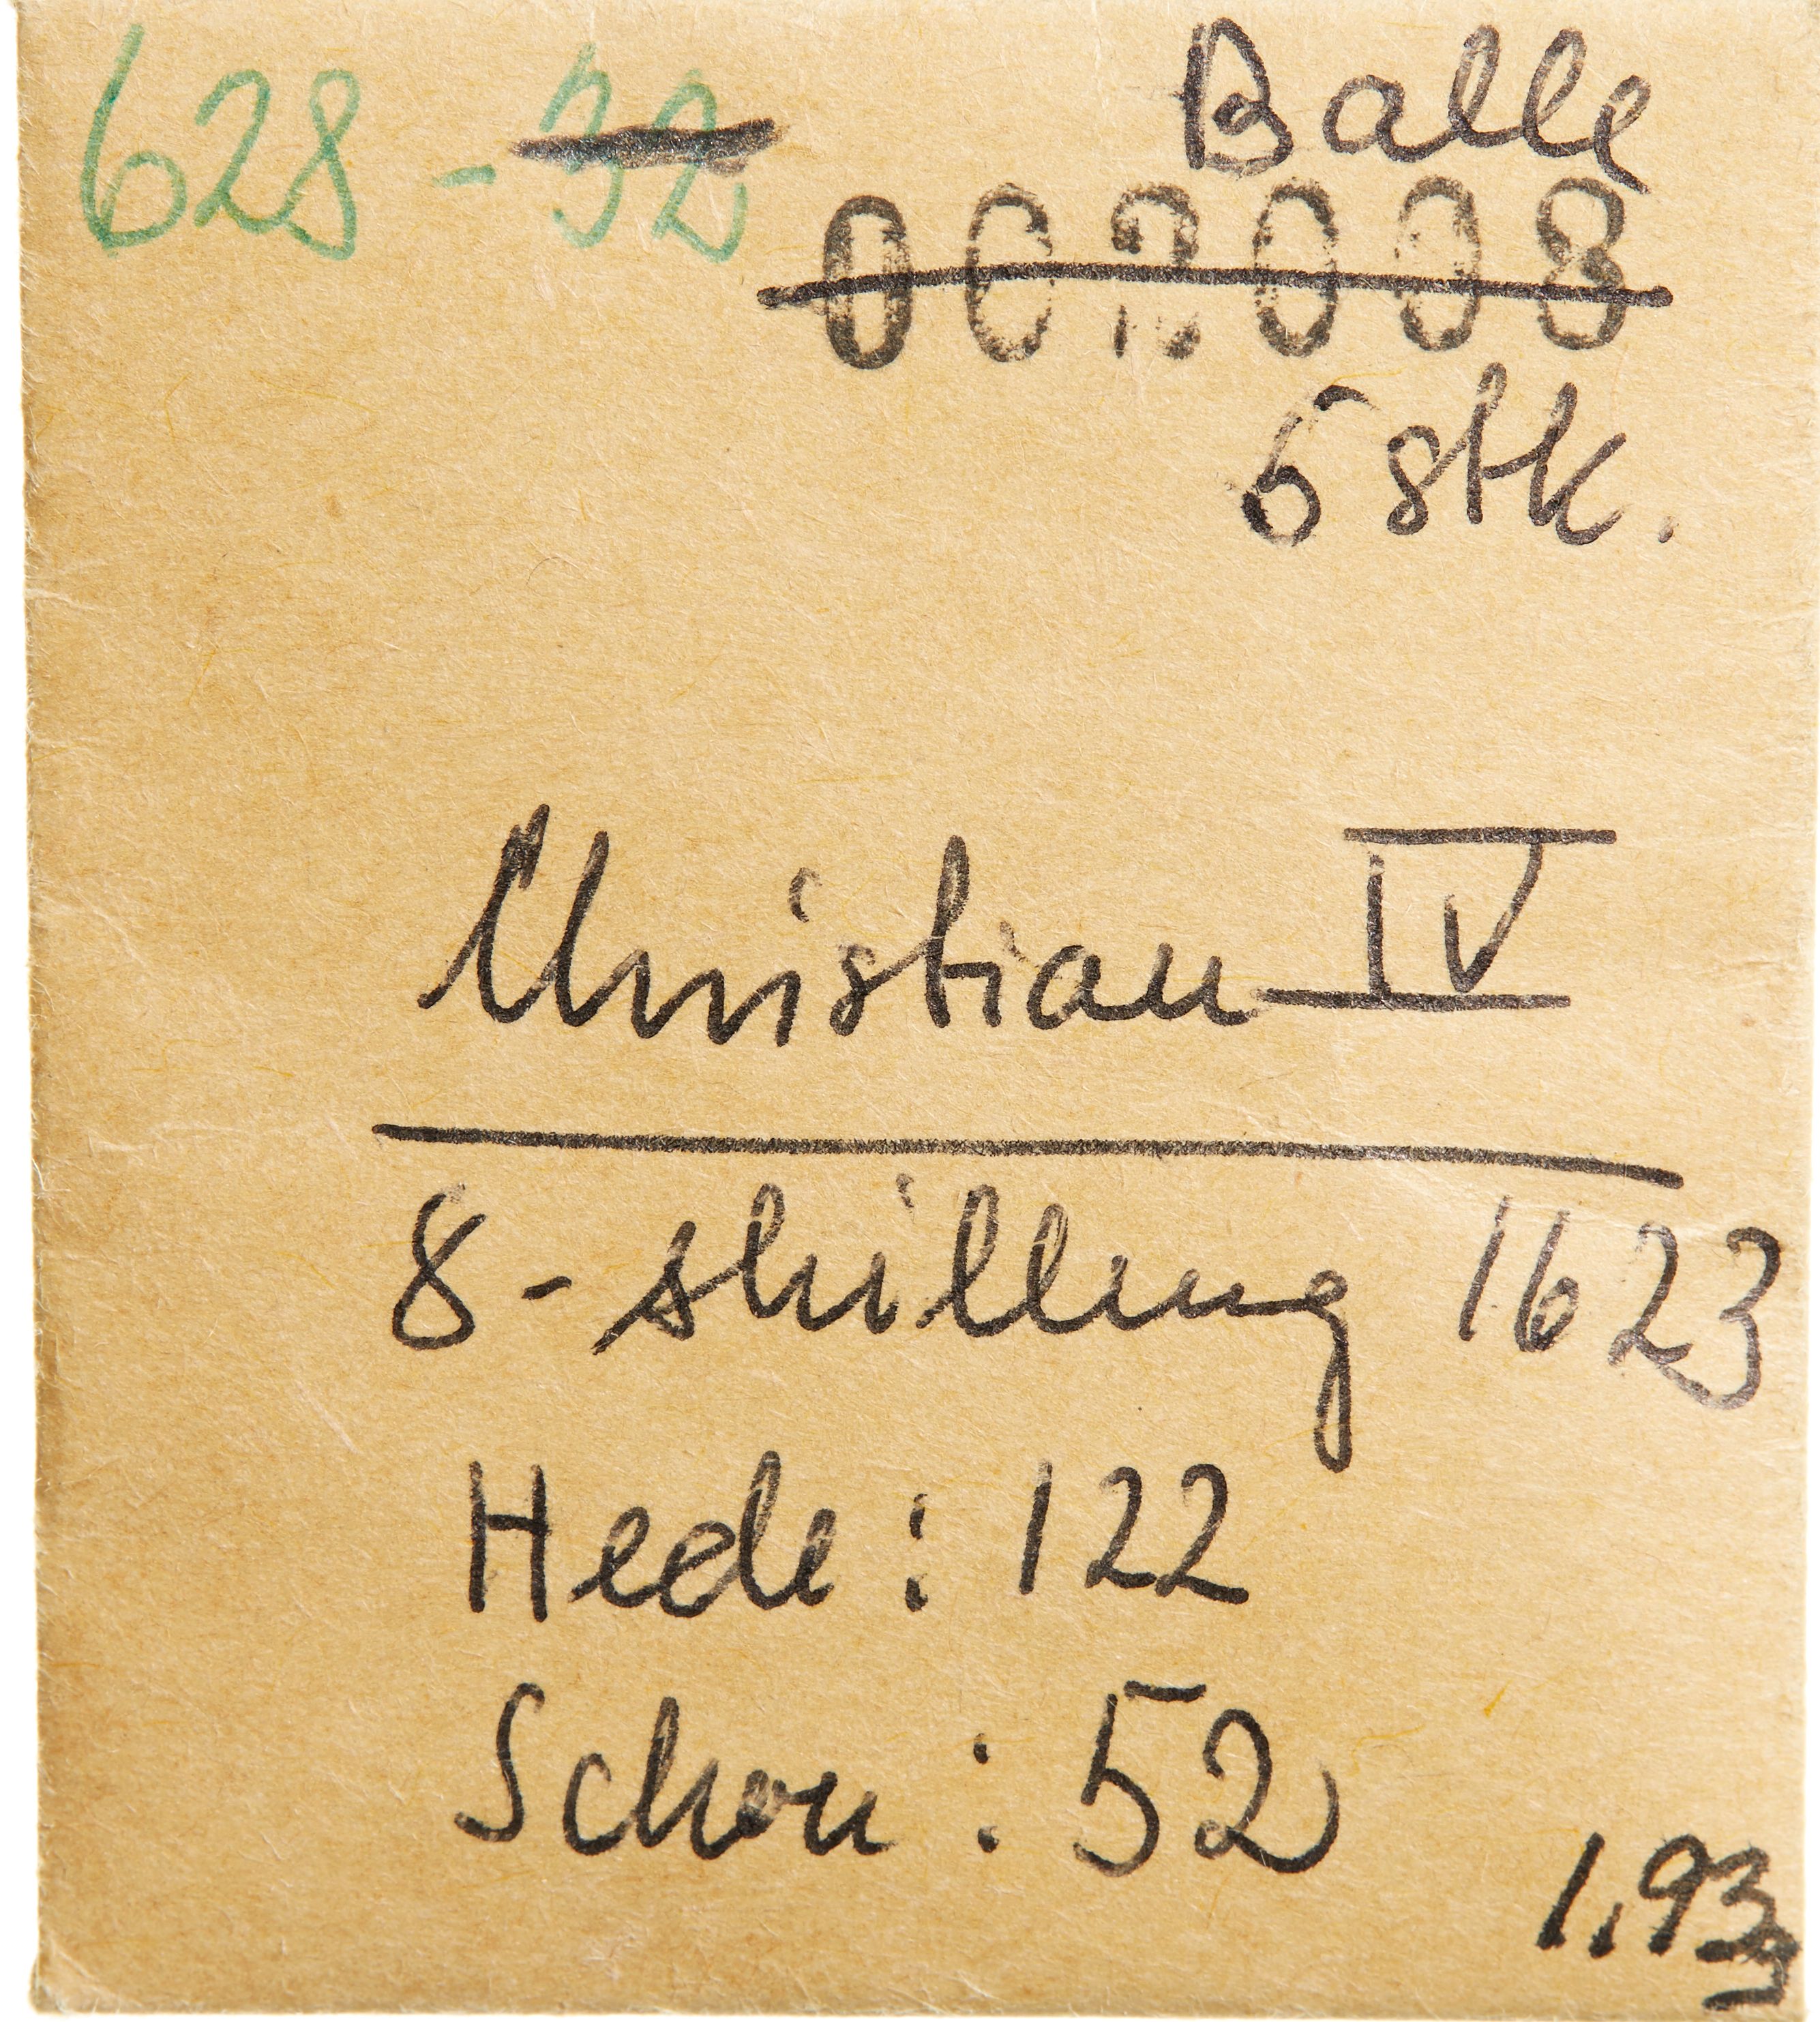 628-32
Balle
002008
5 stk.
Christian IV
8-skilling 1623
Hede: 122
Schou: 52
1,93